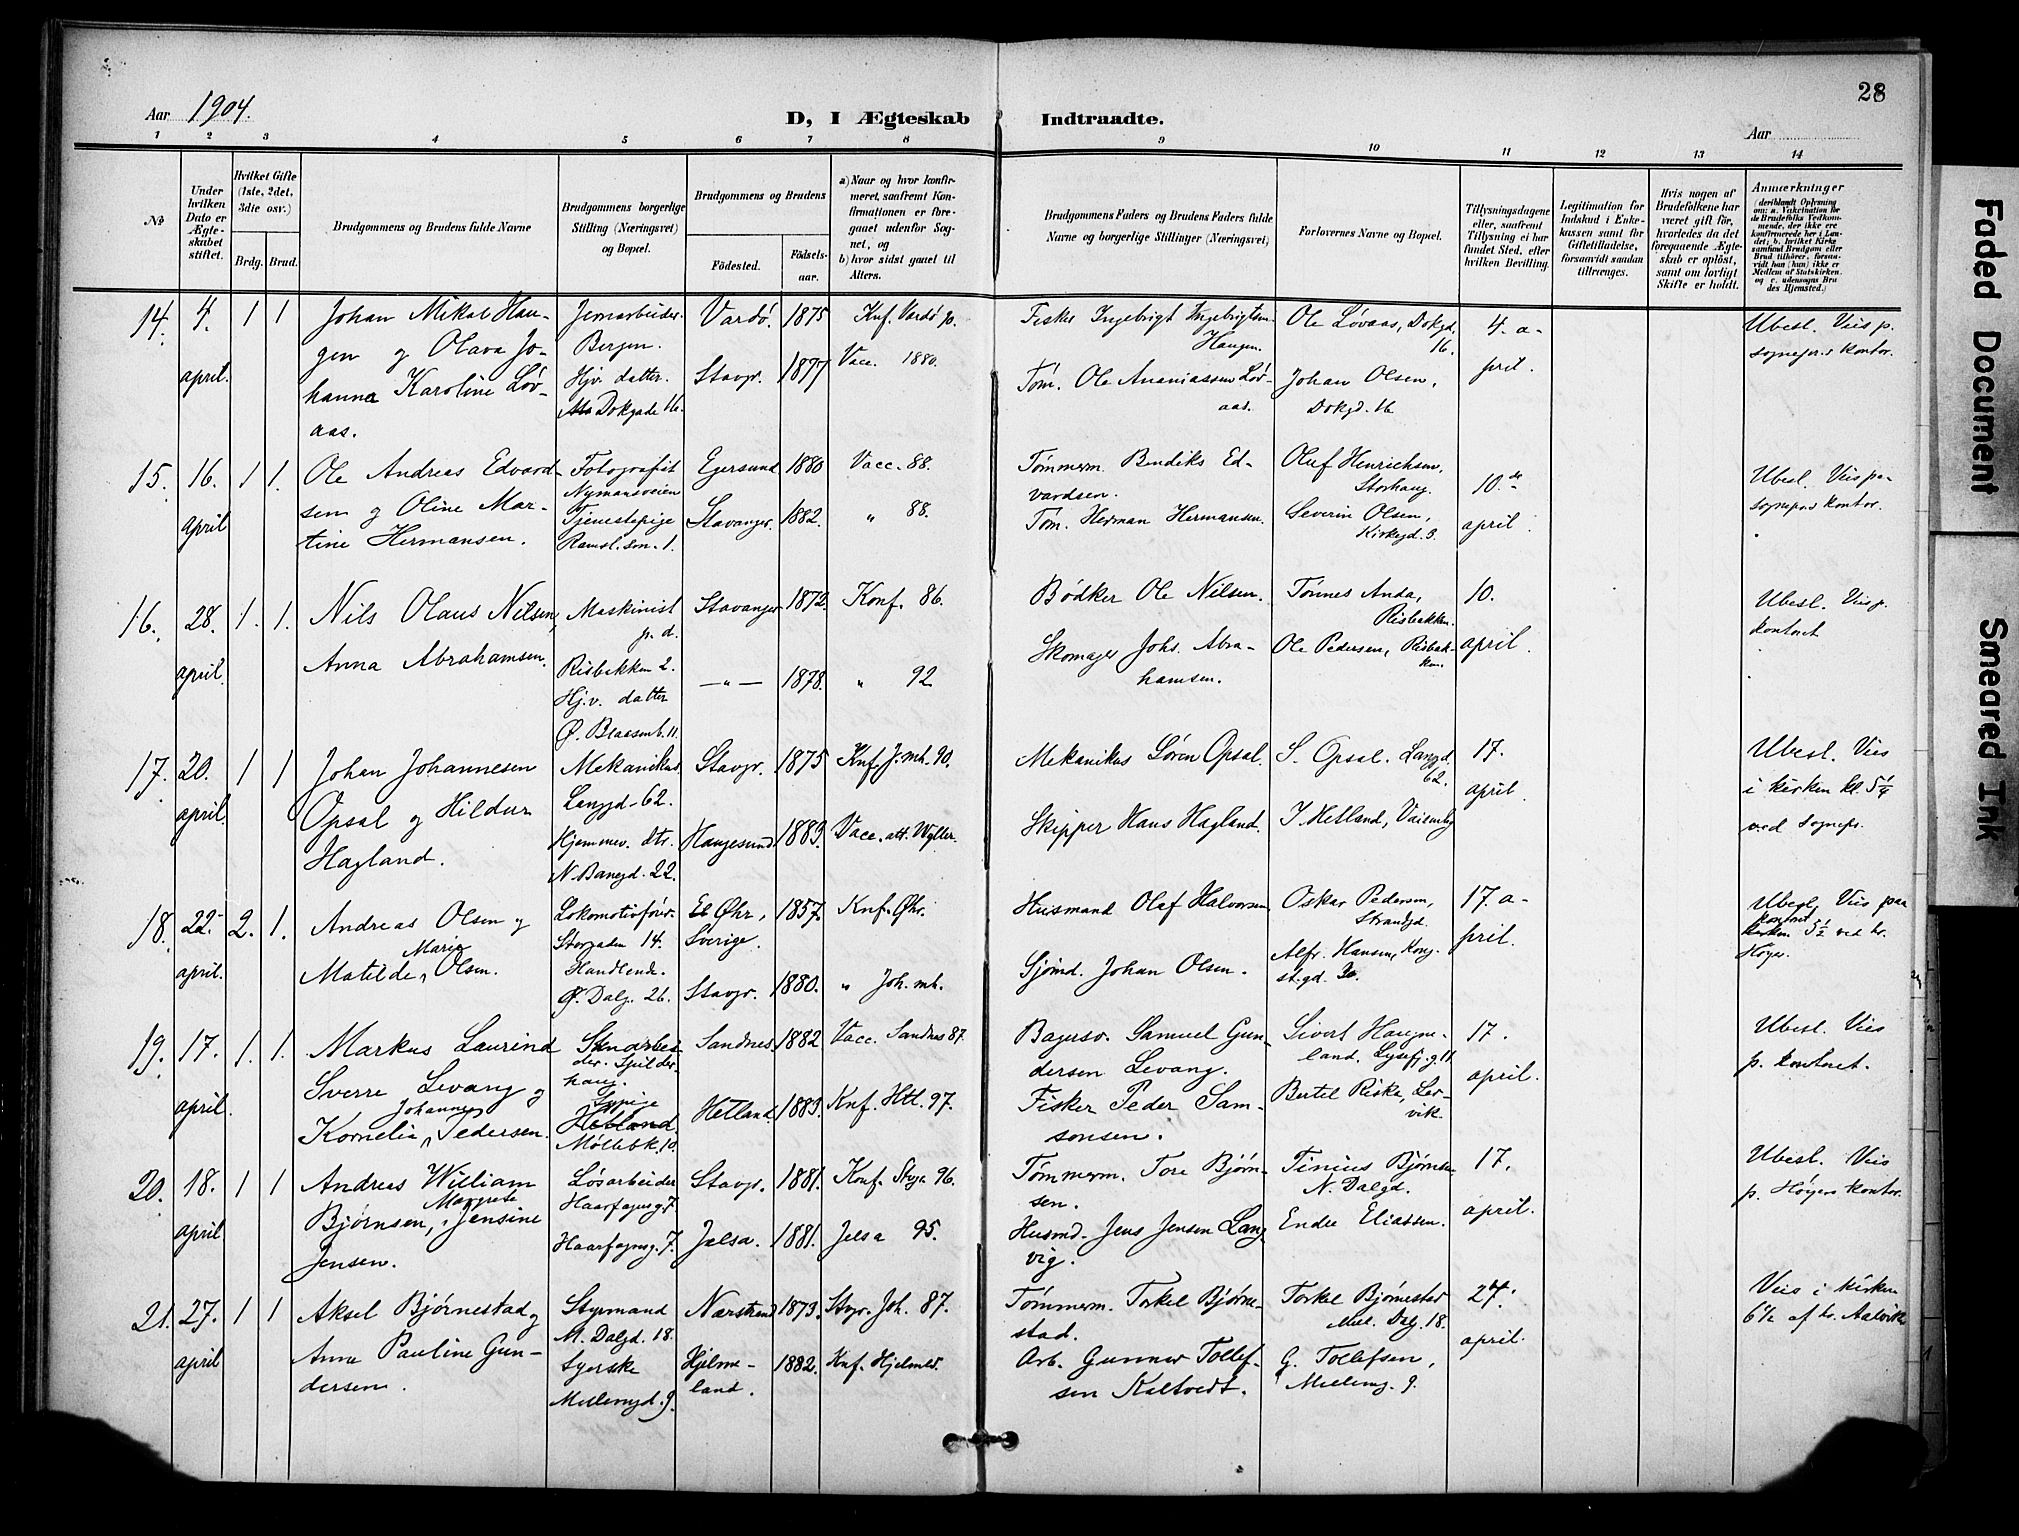 28
Aar 1904.
D, I Ægteskab Indtraadte.
Aar
1 2 3 4 5 6 7 8 9 10 11 12 13 14
No
Under hvilken Dato er Ægteskabet stiftet.
Hvilket Gifte (1ste, 2det, 3die osv.)
Brdg. Brud.
Brudgommens og Brudens fulde Navne
Brudgommens borgerlige Stilling (Næringsvei) og Bopæl.
Brudgommens og Brudens
Födested. Födselsaar.
a) Naar og hvor konfirmeret, saafremt Konfirmationen er foregaaet udenfor Sognet, og
b) hvor sidst gaaet til Alters.
Brudgommens Faders og Brudens Faders fulde Navne og borgerlige Stillinger (Næringsvei)
Forlovernes Navne og Bopæl.
Tillysningsdagene eller, saafremt Tillysning ei har fundet Sted, efter hvilken Bevilling.
Legitimation for Indskud i Enkekassen samt for Giftetilladelse, forsaavidt saadan tiltrænges.
Hvis nogen af Brudefolkene har været gift før, hvorledes da det foregaaende Ægteskab er opløst, samt om lovligt Skifte er holdt.
Anmærkninger
(deriblandt Oplysning om: a. Vakcination for de Brudefolks Vedkommende, der ikke ere konfirmerede her i Landet; b. hvilket Kirkesamfund Brudgom eller Brud tilhører, forsaavidt han (hun) ikke er Medlem af Statskirken. og c. udensogns Brudes Hjemsted.)
14. 4. april. 1 1
Johan Mikal Haugen og Olava Johanna Karoline Løvaas.
Jernarbeider Bergen.
Hjv. datter. Dokgade 16.
Vardö. 1875 Knf. Vardö 90.
Stavgr. 1877 Vacc. 1880.
Fisker Ingebrigt Ingebrigtsen Haugen.
Tøm. Ole Ananiassen Løvaas.
Ole Løvaas, Dokgd. 16.
Johan Olsen, Dokgd. 16
4. april.
Ubesl. Viis p. sognepr.s kontor.
15. 16. april 1 1.
Ole Andreas Edvardsen og Oline Martine Hermansen.
Fotografist Nymansveien
Tjenestepige Ramsl. sm. 1.
Egersund 1880 Vacc. 88.
Stavanger. 1882. „ 88.
Tømmerm. Bendiks Edvardsen.
Tøm. Herman Hermansen.
Oluf Henrichsen, Storhaug.
Severin Olsen, Kirkegd. 3.
10.de april.
Ubesl. Viis paa sognepr.s kontor.
16. 28. april. 1. 1.
Nils Olaus Nilsen, Anna Abrahamsen.
Maskinist p. d. Risbakken 2.
Hj.v. datter Ø. Blaasenb. 11.
Stavanger 1872. Konf. 86.
—„— 1878. „ 92
Bødker Ole Nilsen.
Skomager Johs. Abrahamsen.
Tønnes Anda, Risbakken.
Ole Pedersen, Risbakken.
10. april.
Ubesl. Viis p. kontoret
17. 20. april. 1 1
Johan Johannesen Opsal og Hildur Hagland.
Mekanikus, Langgd. 62.
Hjemmev. dtr. N. Bangd. 22.
Stavgr. 1875 Knf. J.mh. 90.
Haugesund 1883. Vacc. att. Wyller.
Mekanikus Sören Opsal.
Skipper Hans Hagland.
S. Opsal. Langgd. 62.
J. Hetland,
17. april.
Ubesl. Viis i kirken kl. 5¼ ved sognepr.
18. 22. april. 2. 1.
Andreas Olsen og Matilde Marie Olsen.
Lokomotivfører. Storgaden 14.
Handlende. Ø. Dalg. 26.
Øhr, Sverige. 1857. Knf. Øhr.
Stavgr. 1880. „ Joh. mh.
Husmand Olaf Halvorsen
Sjömd. Johan Olsen.
Oskar Pedersen, Strandgd.
Alfr. Hansen, Kongst.gd. 30.
17. april.
Ubesl. Viis paa kontoret 5½ ved hr. Høyer.
19. 17. april. 1. 1.
Markus Laurind Sverre Levang og Kornelia Johanne Pedersen.
Hetland. Møllebk. 10.
Sandnes. 1882 Vacc. Sandnes 87.
Hetland. 1883. Knf. Htl. 97.
Bagersv. Samuel Gundersen Levang.
Fisker Peder Samsonsen.
Sivert Haugneland. Lysefj.g. 11
Bertel Riska, Lervik.
17. april.
Ubesl. Viis p. kontoret.
20. 18. april 1 1
Andreas William Bjørnsen, Jensine Margrete Jensen.
Løsarbeider Haarfagersg. 7
Haarfagersg. 7.
Stavgr. 1881. Konf. Stvgr. 96.
Jælsa. 1881. Jelsa 95.
Tømmerm. Tore Bjørnsen.
Husmd. Jens Jensen Langvig.
Tinius Bjørnsen N. Dalgd.
Endre Eliassen.
17. april.
Ubesl. Viis p. Høyers kontor.
21. 27. april 1 1
Aksel Bjørnestad og Anna Pauline Gundersen.
Styrmand M. Dalgd. 18.
Syerske Mellemgd. 9.
Nærstrand 1873. Stvgr. Joh. 87.
Hjelmeland. 1882. Knf. Hjelmel.
Tømmerm. Torkel Bjørnestad.
Arb. Gunner Tollefsen Kaltvedt.
Torkel Bjørnestad Mel. Dalg. 18.
G. Tollefsen, Mellemg. 9.
24. april.
Viis i kirken 6½ af hr. Aalvik
Faded Document
Smeared Ink